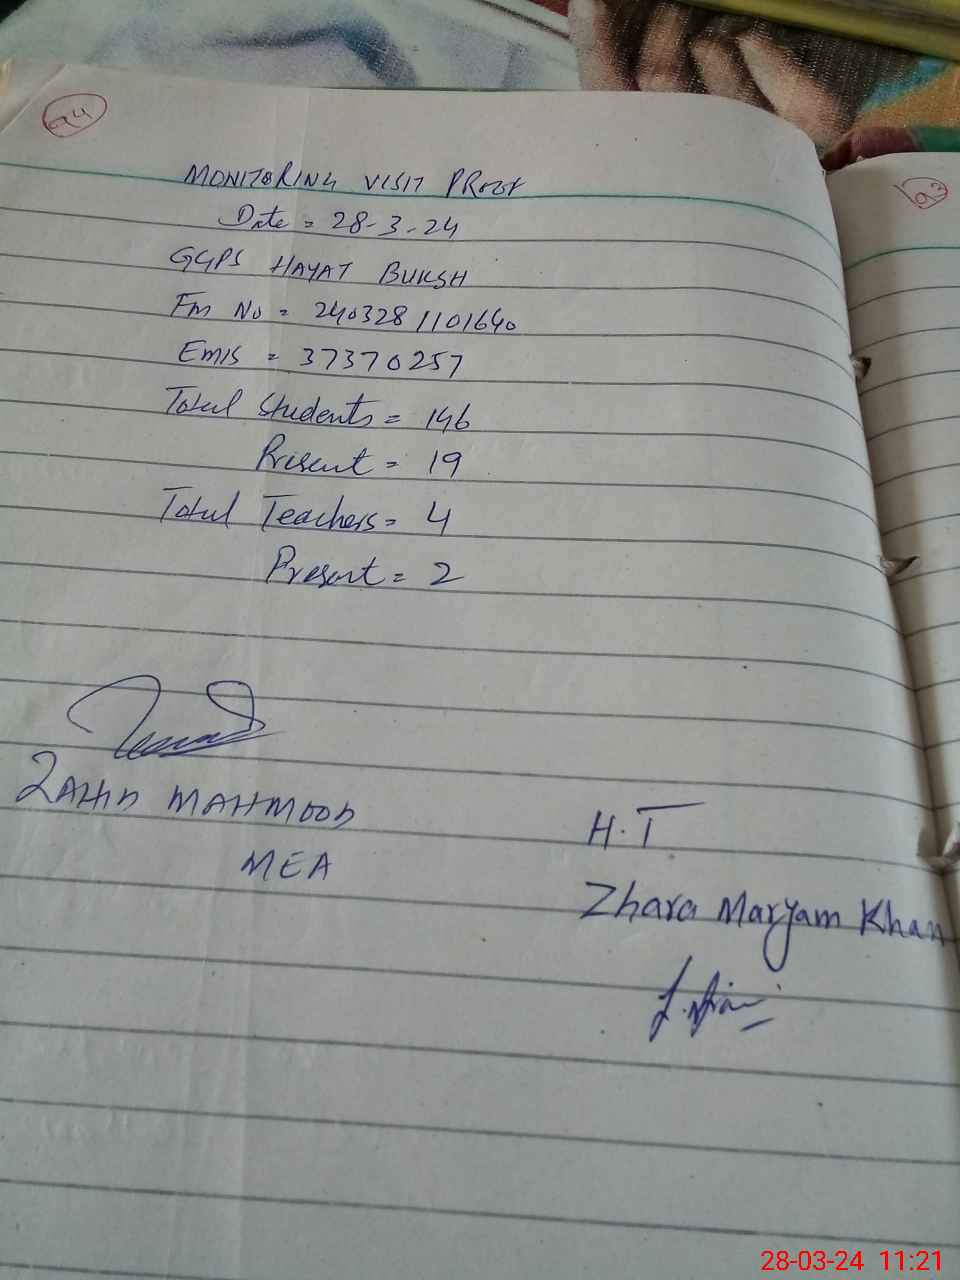 94
93
MONITORING VISIT PROOF
Date = 28-3-24
GGPS HAYAT BUKSH
Fm No = 2403281101640
EMIS = 37370257
Total Students = 146
Present = 19
Total Teachers = 4
Present = 2
ZAHID MAHMOOD
MEA
H.T
Zhara Maryam Khan
28-03-24 11:21